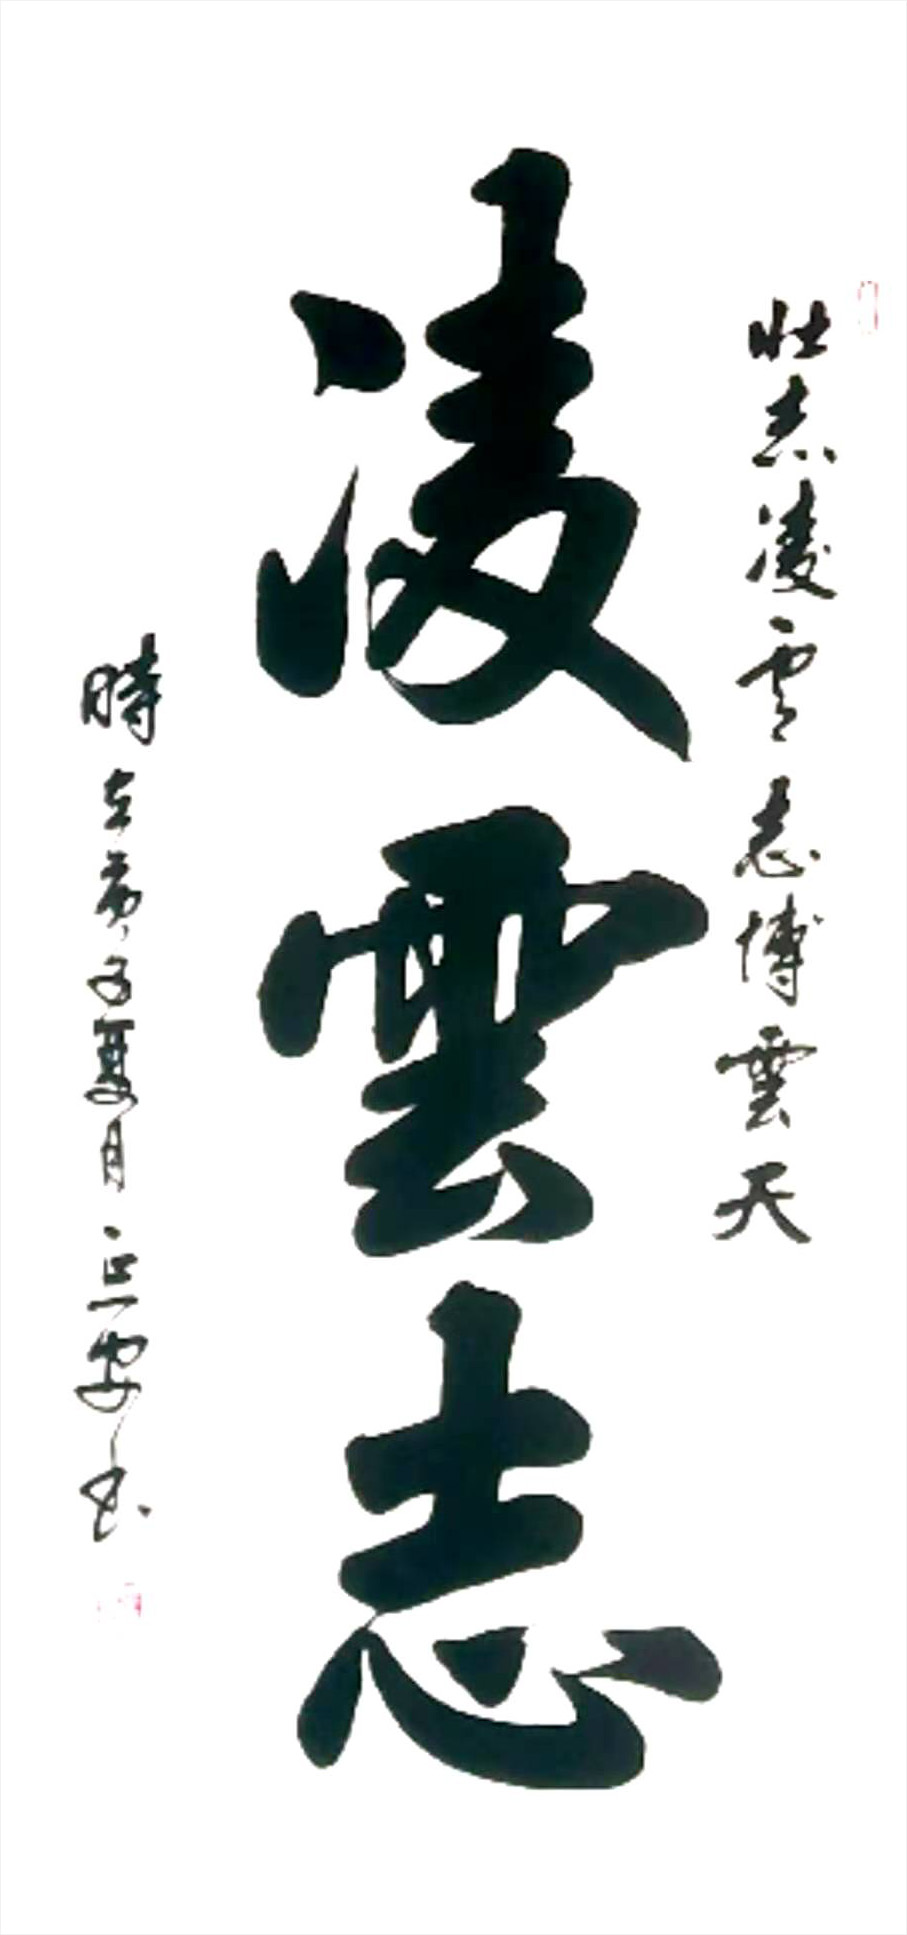 壮志凌雲志博雲天
凌雲志
時在庚子夏月正安书